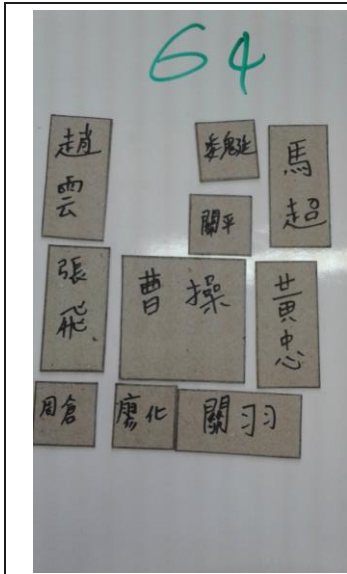 64
趙雲
魏延
馬超
關平
張飛
曹操
黃忠
周倉
廖化
關羽